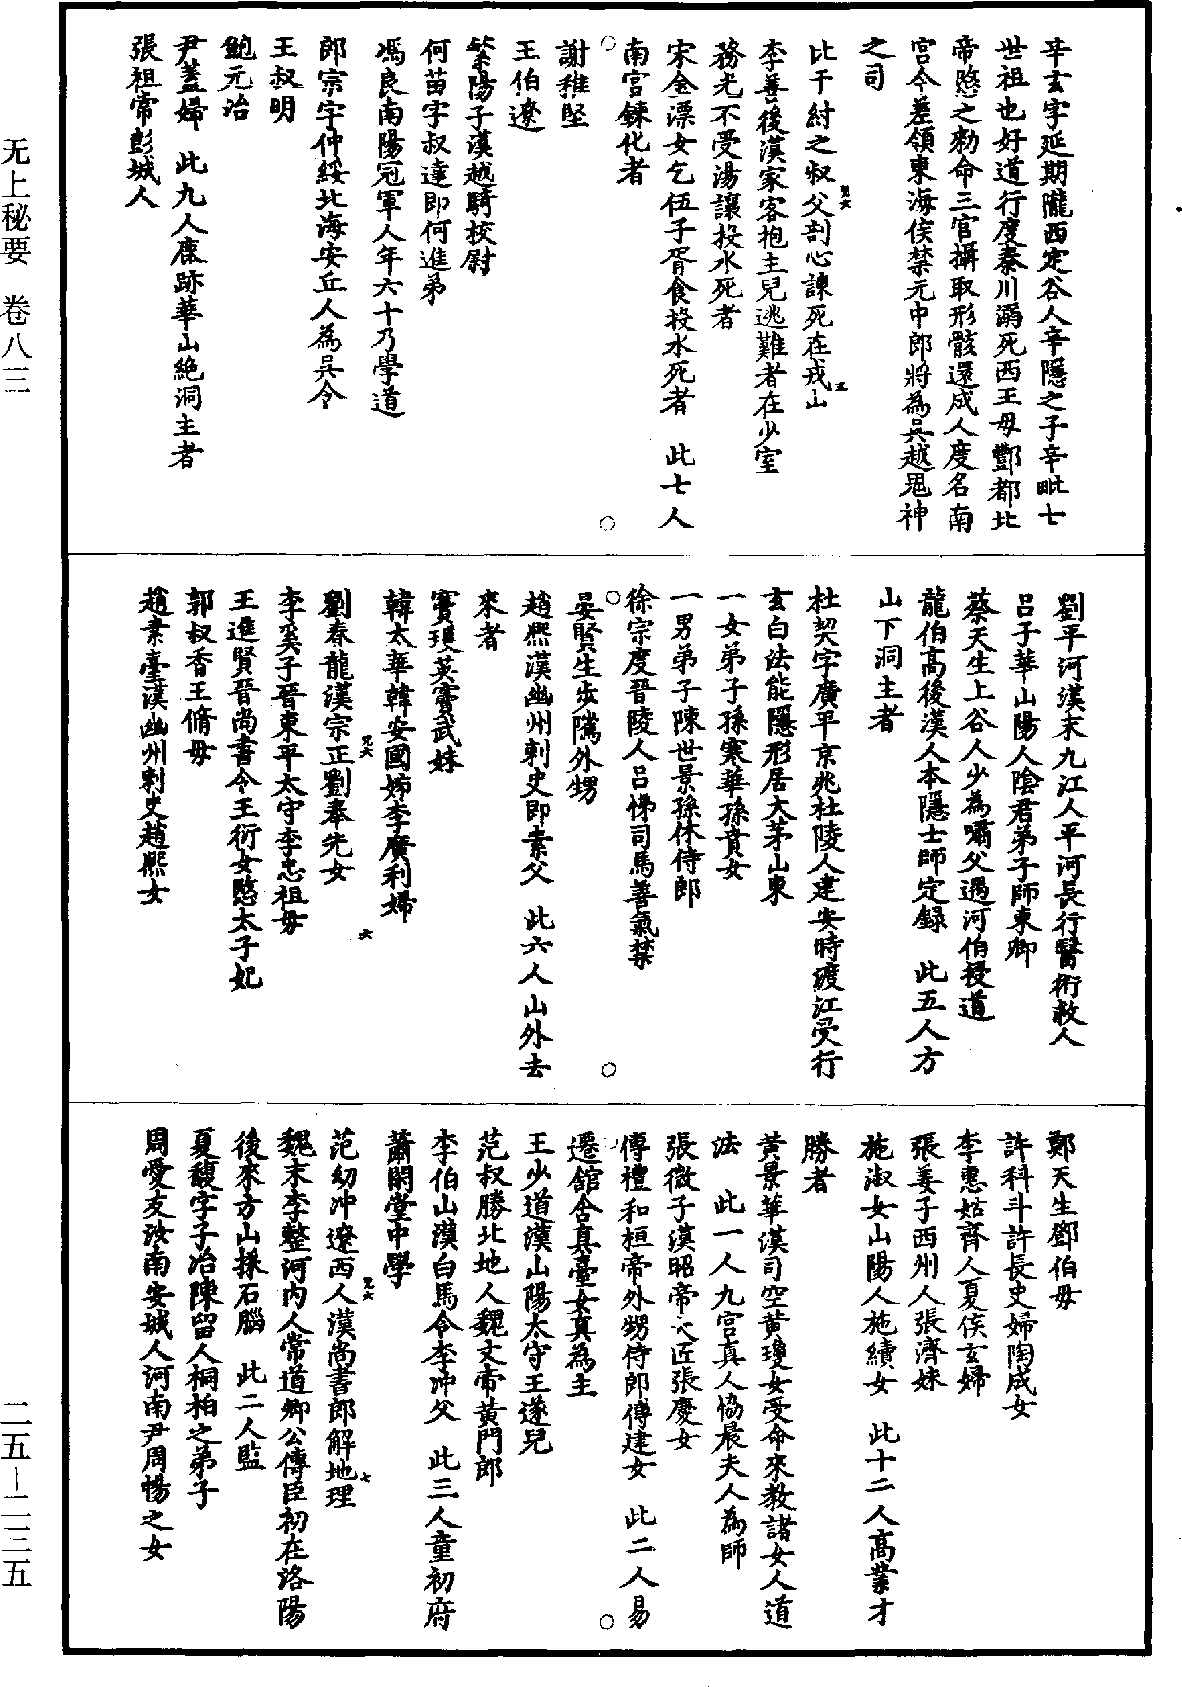 辛玄字延期隴西定谷人辛隱之子辛毗七
世祖也好道行度秦川溺死西王母酆都北
帝愍之勑命三官攝取形骸還成人度名南
宮今差領東海侯禁元中郎將為吳越鬼神
之司
比干紂之叔父剖心諫死在戎山
李善後漢家客抱主兒逃難者在少室
務光不受湯讓投水死者
宋金漂女乞伍子胥食投水死者 此七人
南宮鍊化者
謝稚堅
王伯遼
繁陽子漢越騎校尉
何苗字叔達即何進弟
馮良南陽冠軍人年六十乃學道
郎宗字仲綏北海安丘人為吳令
王叔明
鮑元治
尹蓋婦 此九人廩跡華山絶洞主者
張祖常彭城人
劉平河漢末九江人平河長行醫術救人
呂子華山陽人陰君弟子師東卿
蔡天生上谷人少為嘯父遇河伯授道
龍伯高後漢人本隱士師定録 此五人方
山下洞主者
杜契字廣平京兆杜陵人建安時渡江受行
玄白法能隱形居大茅山東
一女弟子孫寒華孫賁女
一男弟子陳世景孫休侍郎
徐宗度晉陵人呂悌司馬善氣禁
晏賢生步隲外甥
趙熙漢幽州刺史即素父 此六人山外去
來者
竇瓊英竇武妹
韓太華韓安國姊李廣利婦
劉春龍漢宗正劉奉先女
李奚子晉東平太守李忠祖母
王進賢晉尚書令王衍女愍太子妃
郭叔香王脩母
趙素臺漢幽州刺史趙熙女
鄭天生鄧伯母
許科斗許長史婦陶成女
李惠姑齊人夏侯玄婦
張姜子西州人張濟妹
施淑女山陽人施績女 此十二人高業才
勝者
黃景華漢司空黃瓊女受命來教諸女人道
法 此一人九宮真人協晨夫人為師
張微子漢昭帝大匠張慶女
傅禮和桓帝外甥侍郎傅建女 此二人易
遷館含真臺女真為主
王少道漢山陽太守王遂兒
范叔勝北地人魏文帝黃門郎
李伯山漢白馬令李沖父 此三人童初府
蕭閑堂中學
范幼沖遼西人漢尚書郎解地理
魏末李整河内人常道鄉公傅臣初在洛陽
後來方山採石腦 此二人監
夏馥字子冶陳留人桐柏之弟子
周愛支汝南安城人河南尹周暢之女
无上秘要 卷八三
二五－二三五